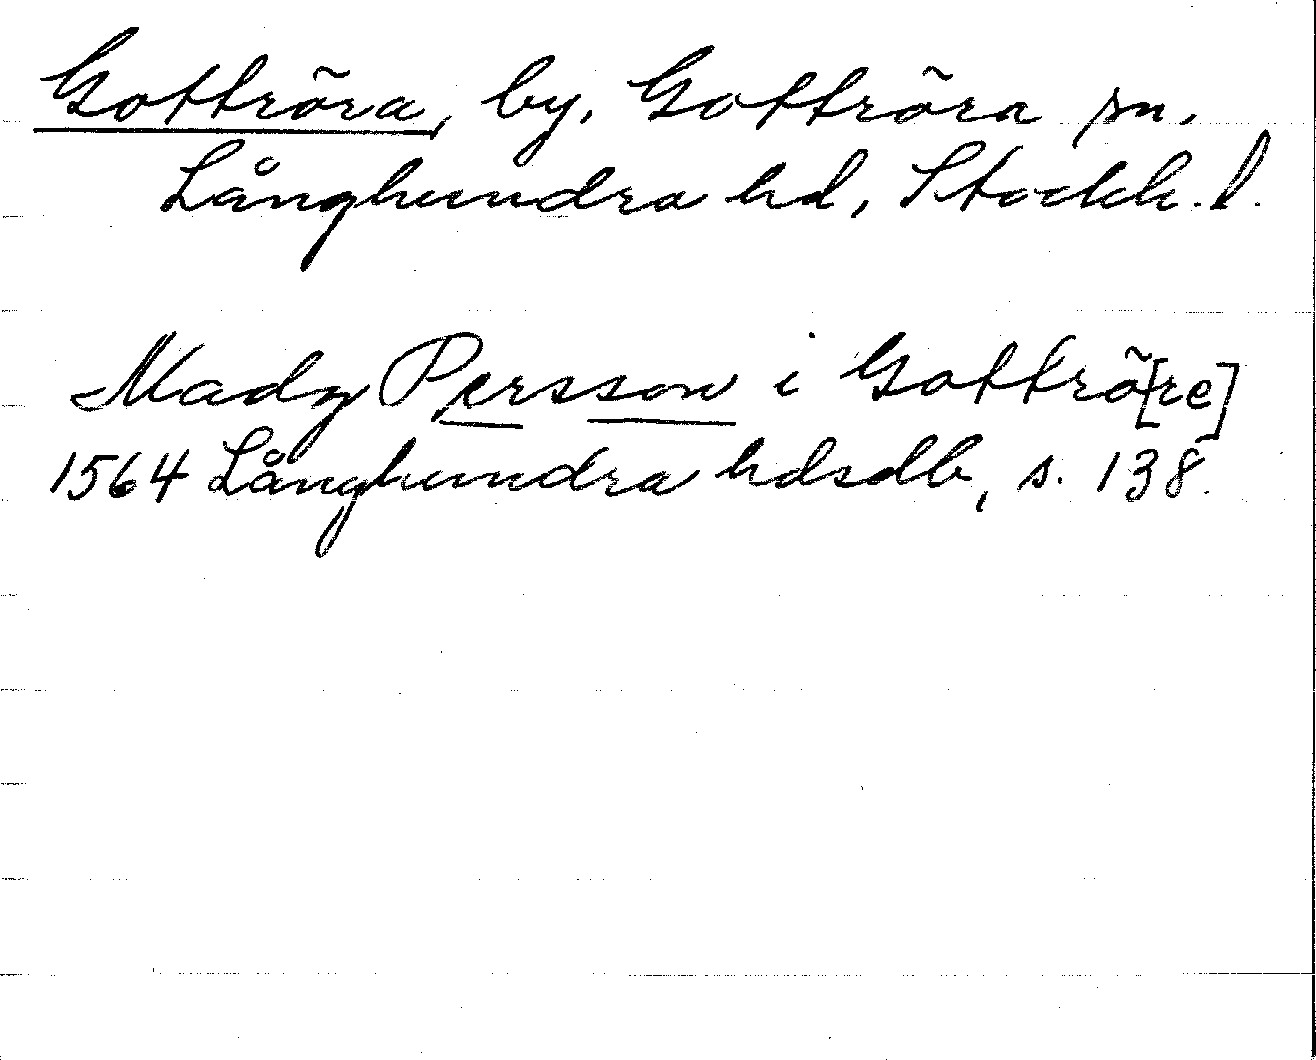 Gottröra, by, Gottröra sn.
Långhundra hd, Stockh. l.
Madz Persson i Gottrö[re]
1564 Långhundra hdsdb, s. 138.